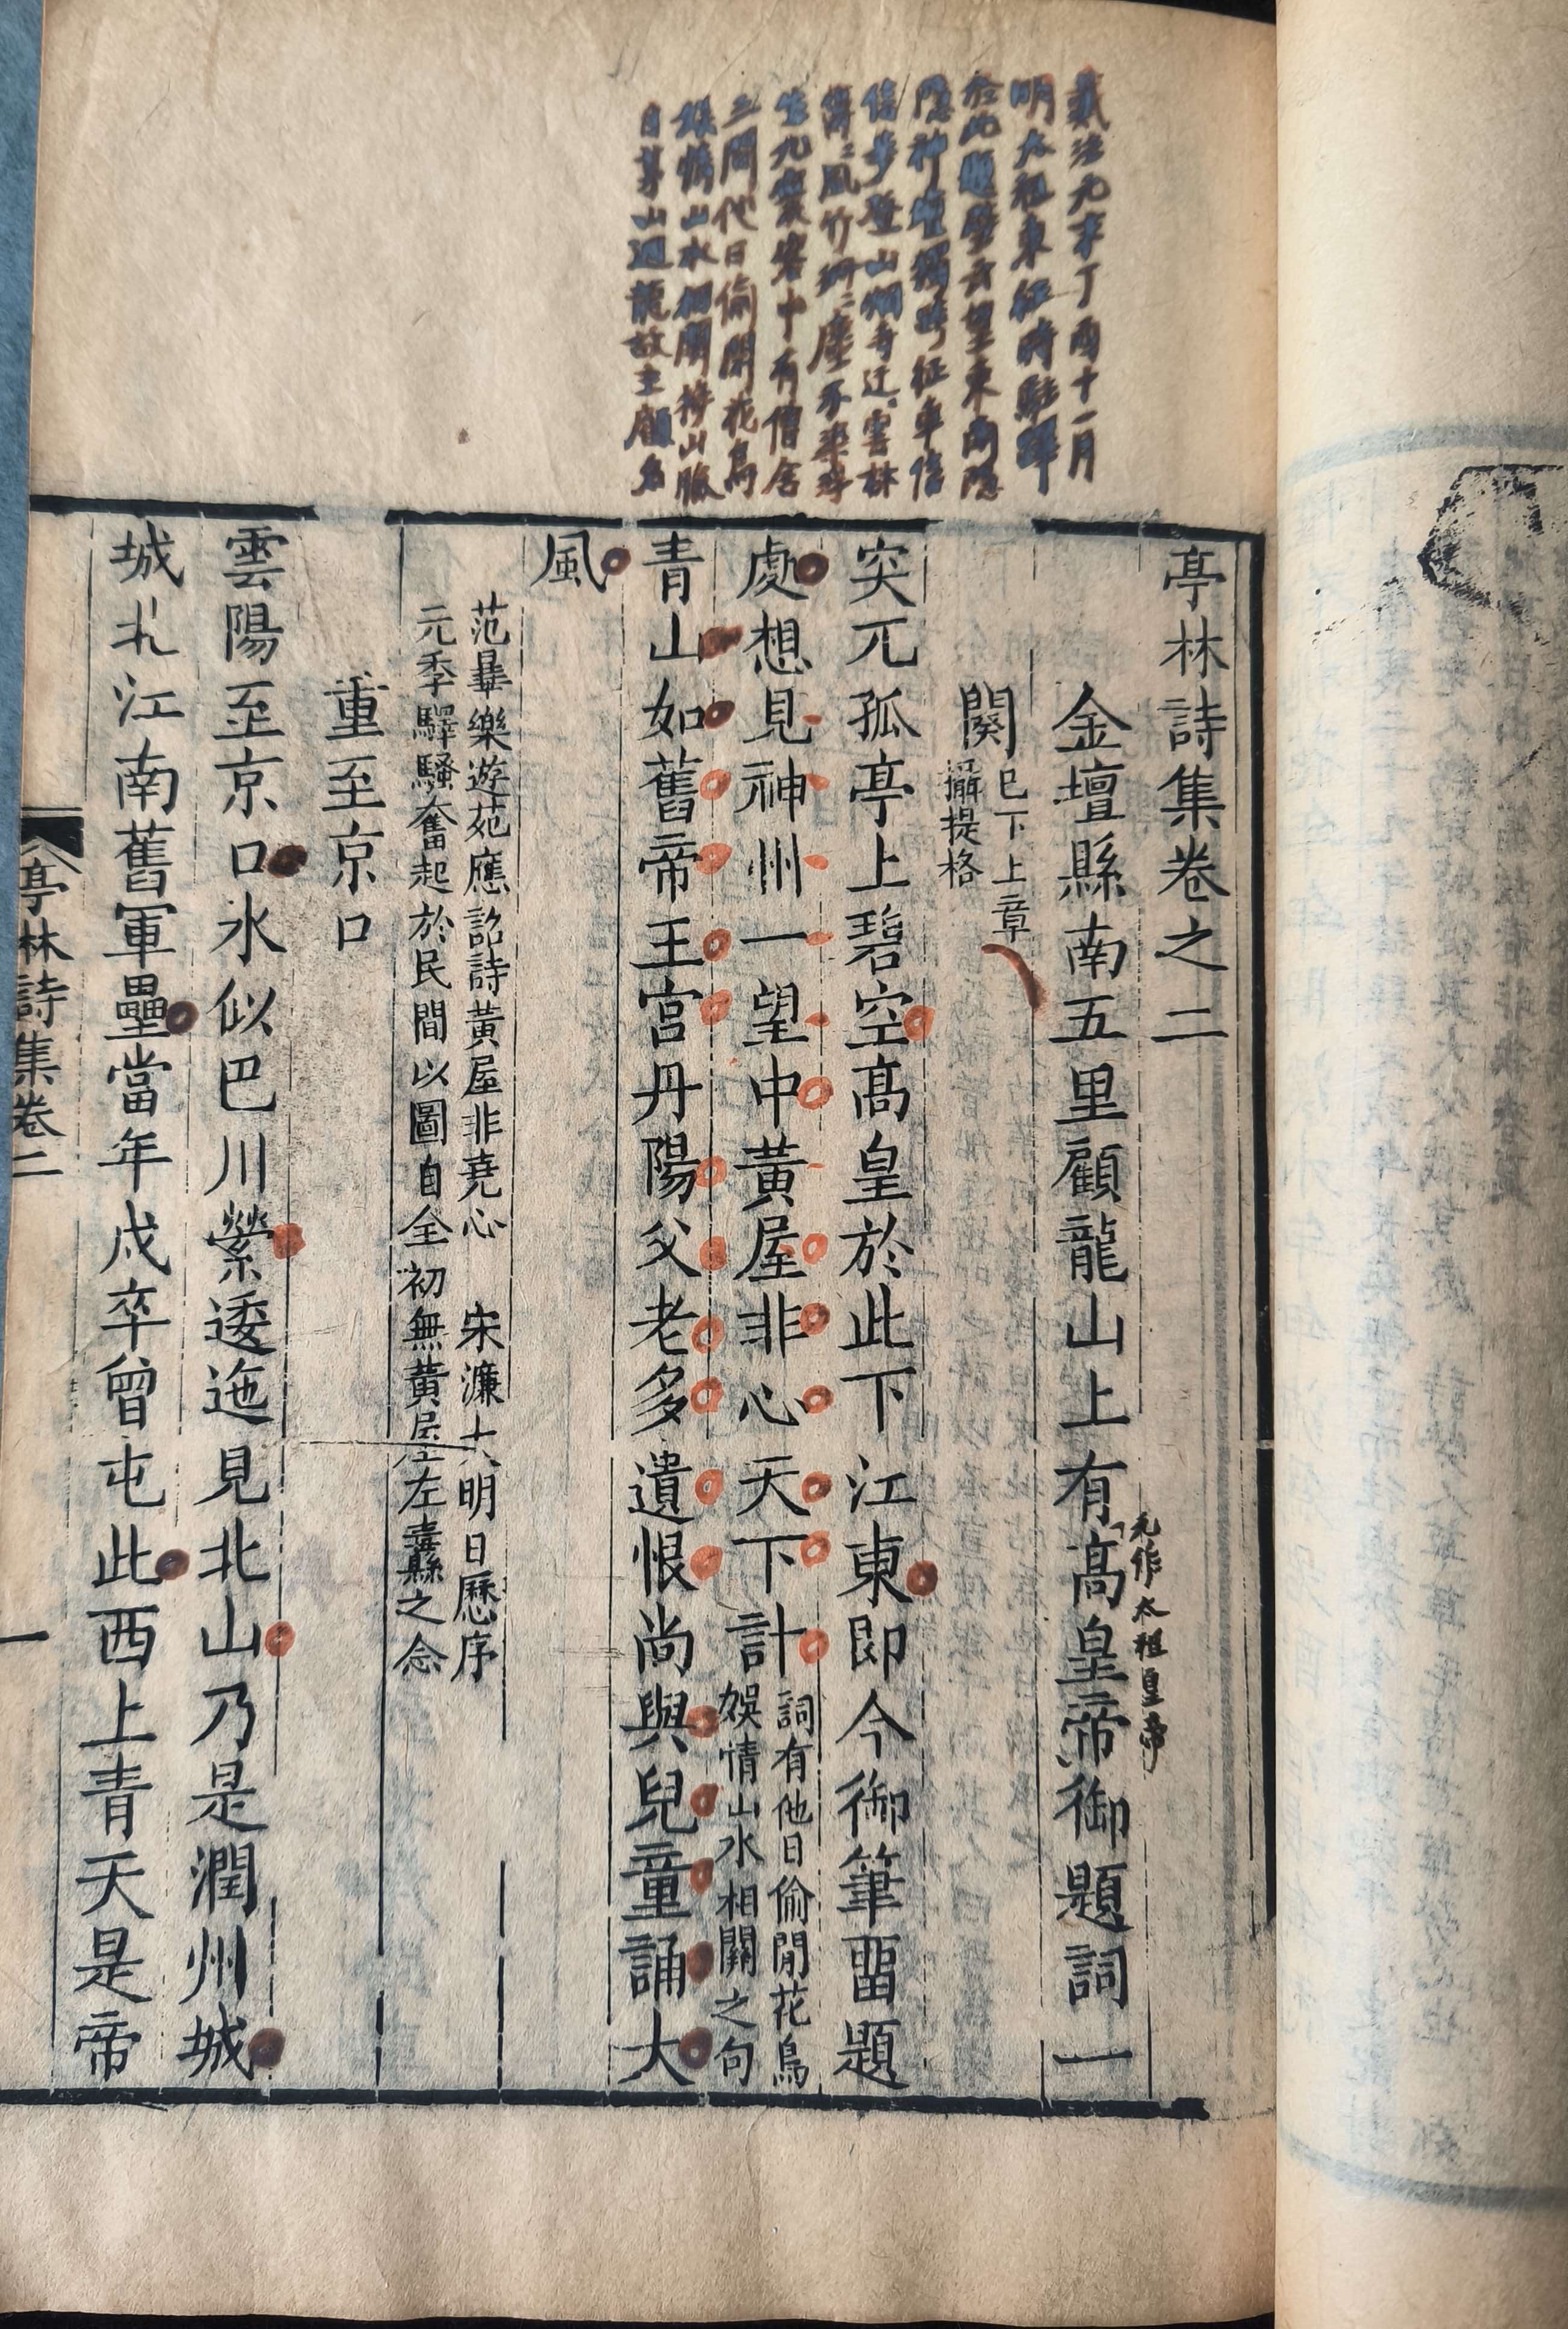 戴注元末丁酉十一月
明太祖東征時駐蹕
於此題壁云望東南隱
隱神壇獨跨征車信
信步登山烟寺迂〻雲林
風竹珊〻塵不染
生九窠窠中有僧舍
三間他日偷閒花鳥
娛情山水相關
日茅山迴龍故主廟名
亭林詩集卷之二
金壇縣南五里顧龍山上有高皇帝御題詞一
元作太祖皇帝
闋
已下上章
攝提格
突兀孤亭上碧空高皇於此下江東即今御筆畱題
處想見神州一望中黃屋非心天下計
詞有他日偷閒花鳥
娛情山水相關之句
青山如舊帝王宮丹陽父老多遺恨尚與兒童誦大
風
范曅樂遊苑應詔詩黃屋非堯心 宋濂大明日歷序
元季驛騷奮起於民間以圖自全初無黃屋左纛之念
重至京口
雲陽至京口水似巴川縈逶迤見北山乃是潤州城
城北江南舊軍壘當年戍卒曾屯此西上青天是帝
亭林詩集卷二
一